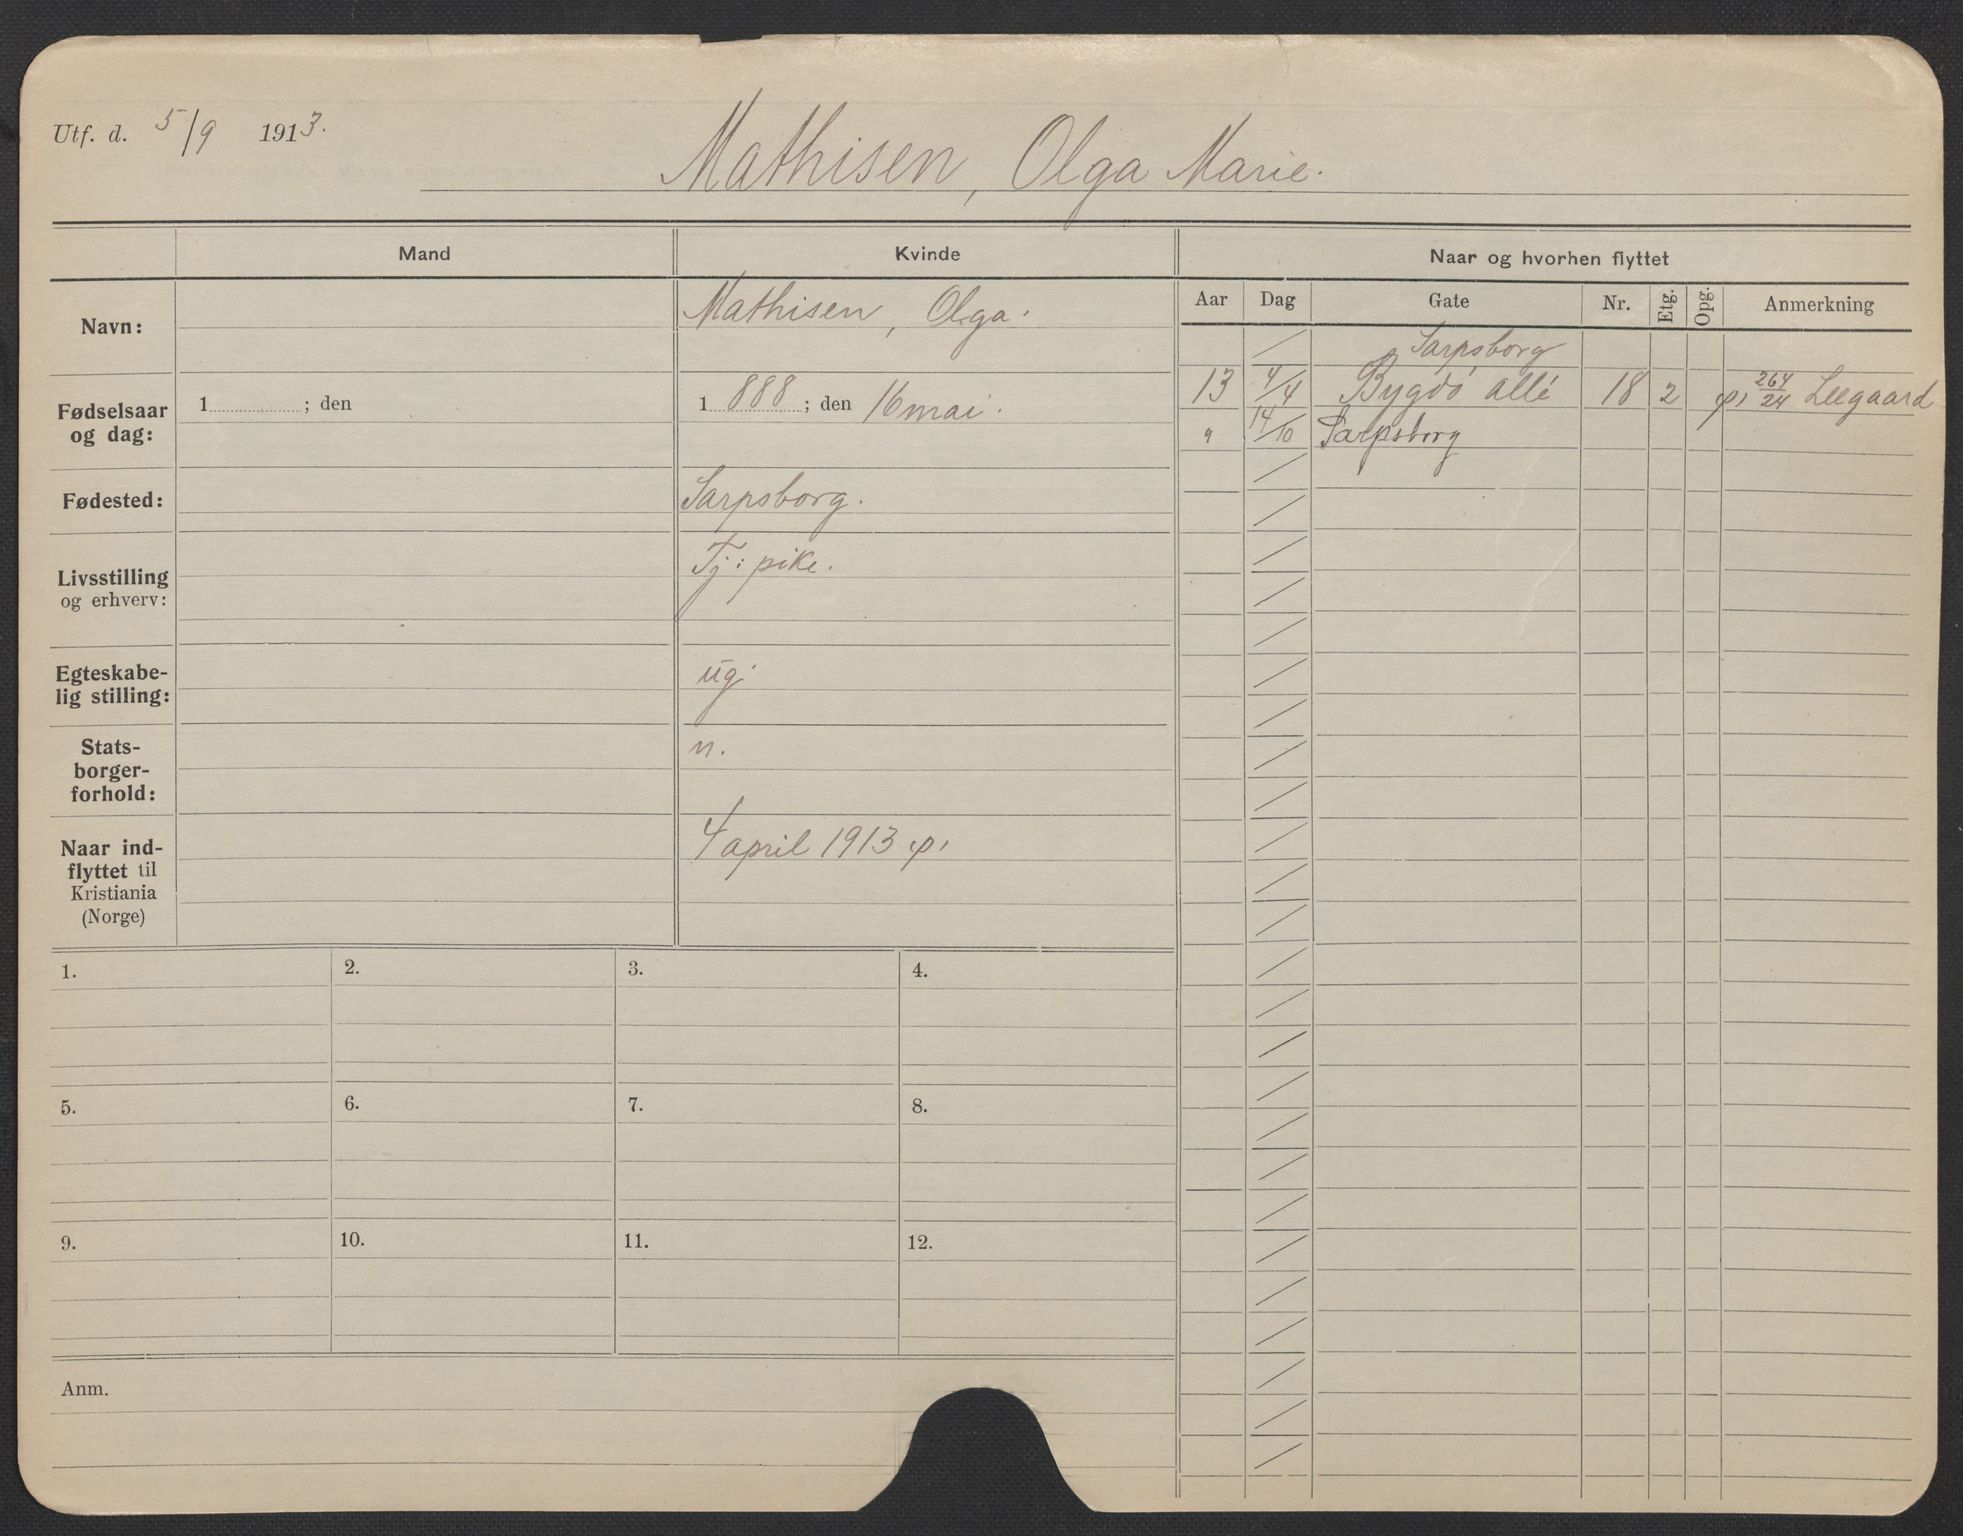 Utf. d. 5/9 1913.
Mathisen, Olga Marie.
Mand Kvinde Naar og hvorhen flyttet
Aar Dag Gate Nr. Etg. Opg. Anmerkning
Navn: Mathisen, Olga.
Fødselsaar og dag: 1 ; den 1888 ; den 16 mai.
Fødested: Sarpsborg.
Livsstilling og erhverv: Tj: pike.
Egteskabe-
lig stilling: ug.
Stats-
borger-
forhold: n.
Naar ind-
flyttet til
Kristiania
(Norge) 4 april 1913
Sarpsborg
13 4/4 Bygdö allé 18 2 264/24 Leegaard
" 14/10 Sarpsborg
1. 2. 3. 4.
5. 6. 7. 8.
9. 10. 11. 12.
Anm.